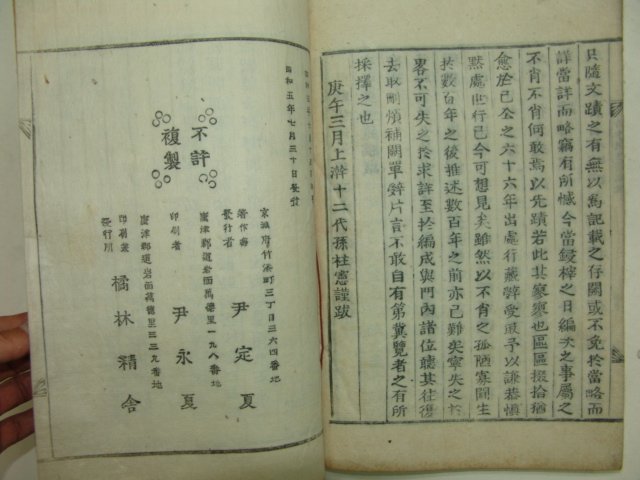 具隨文蹟之有無以爲記載之仔關或不免於當略而
詳當詳而略竊有所憾今當鋟梓之日編次之事屬之
不肖不肖何敢焉以先蹟若此其寥寥也區區掇拾猶
愈於已公之六十六年出處行藏辭受取予以謙恭愼
默處世行己今可想見矣雖然以不肖之孤陋寡聞生
於數百年之後推述數百年之前亦已難矣寧失之於
畧不可失之於求詳至於編成與門內諸位聽其往復
去取刪煩補闕單辭片言不敢自有第冀覽者之有所
採擇之也
庚午三月上澣十二代孫柱憲謹跋
昭和五年七月三十日發賣
不許
複製
京城府竹添町三丁目三六四番地
著作者
發行者 尹定夏
唐津郡道岩面萬德里一九八番地
印刷者 尹永夏
唐津郡道岩面萬德里三三九番地
印刷兼
發行所 橘林精舍